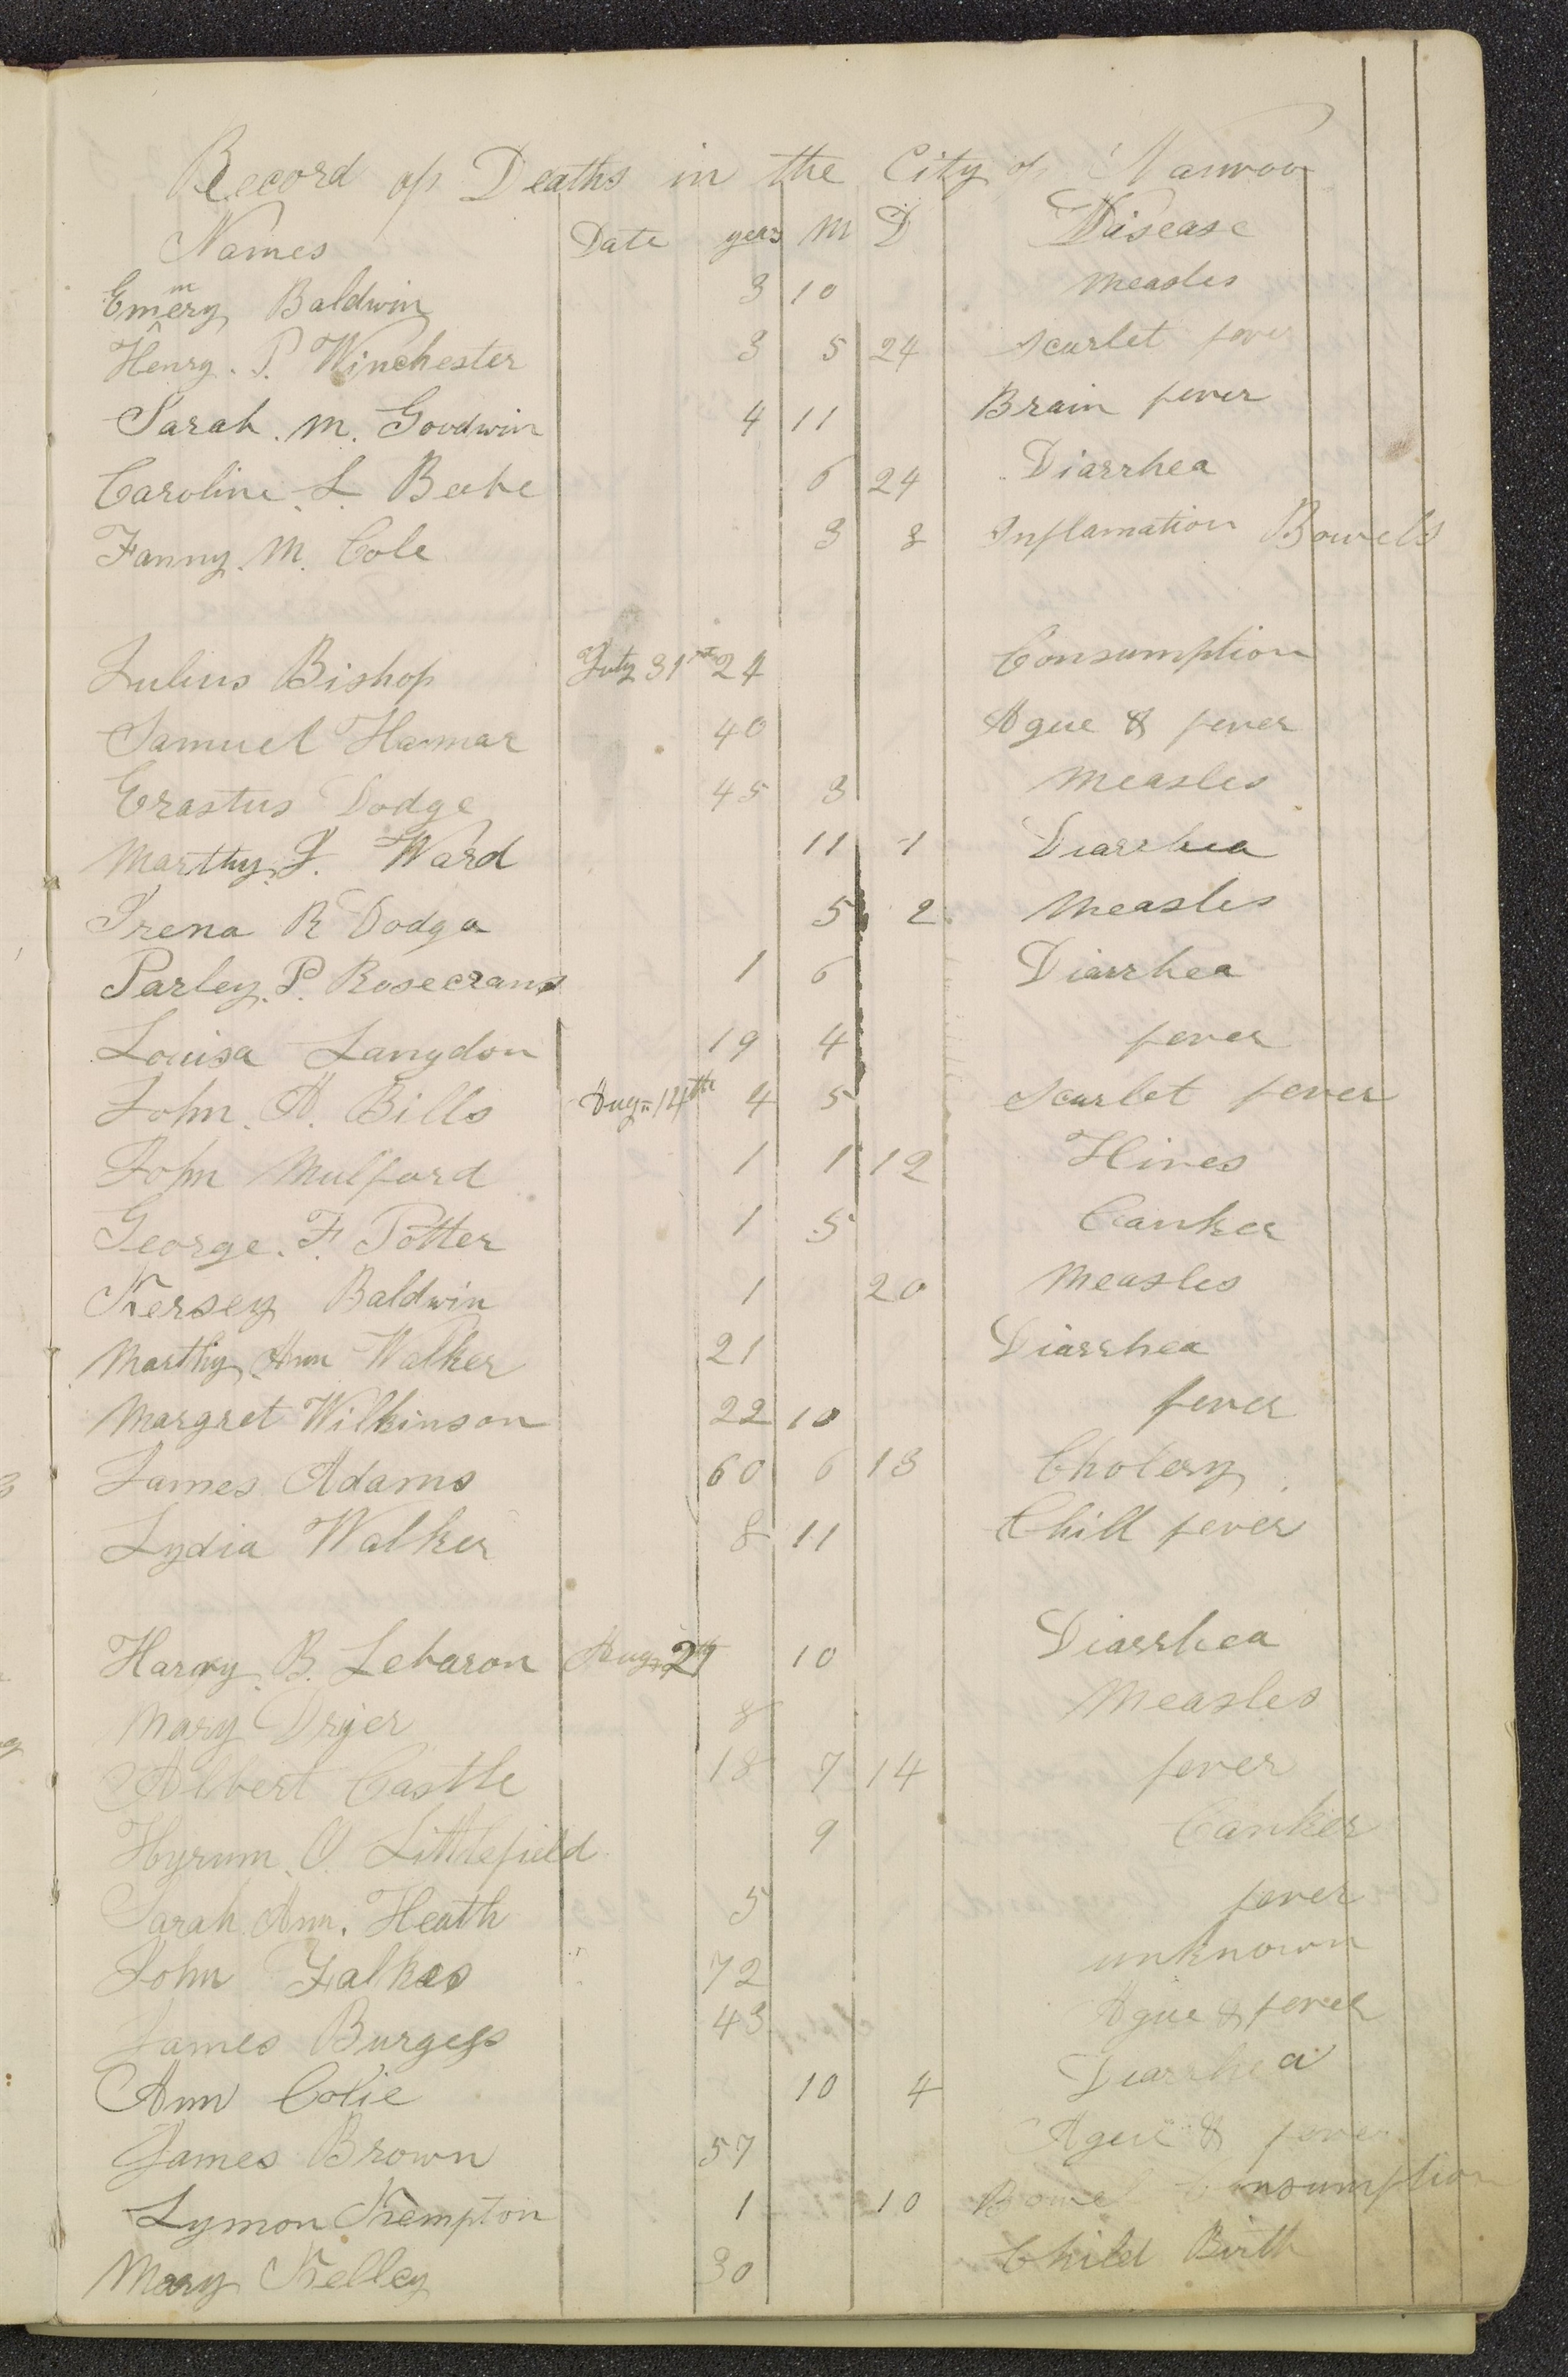 Record of Deaths in the City of Nauvoo
Names Date years M D Disease
Emmery Baldwin 3 10 Measles
Henry. P. Winchester 3 5 24 Scarlet fever
Sarah. M. Goodwin 4 11 Brain fever
Caroline. L. Beebe 6 24 Diarrhea
Fanny. M. Cole 3 8 Inflamation Bowels
Julius Bishop July 31st 24 Consumption
Samuel Hammar 40 Ague & fever
Erastus Dodge 45 3 Measles
Marthy. J. Ward 11 1 Diarrhea
Irena R Dodge 5 2 Measles
Parley. P. Rosecrans 1 6 Diarrhea
Louisa Langdon 19 4 fever
John. A. Bills Aug= 14th 4 5 Scarlet fever
John Mulford 1 1 12 Hives
George. F. Potter 1 5 Canker
Kersey Baldwin 1 20 Measles
Marthy Ann Walker 21 Diarrhea
Margret Wilkinson 22 10 fever
James Adams 60 6 13 Cholery
Lydia Walker 8 11 Chill fever
Harvy. B. Lebaron Aug= 10 Diarrhea
Mary Dryer 8 Measles
Albert Castle 18 7 14 fever
Hyrum. O. Littlefield 9 Canker
Sarah Ann. Heath 5 fever
John Falkes 72 unknown
James Burgess 43 Ague & fever
Ann Colie 10 4 Diarrhea
James Brown 57 Ague & fever
Lymon Kempton 1 10 Bowel Consumption
Mary Kelley 30 Child Birth